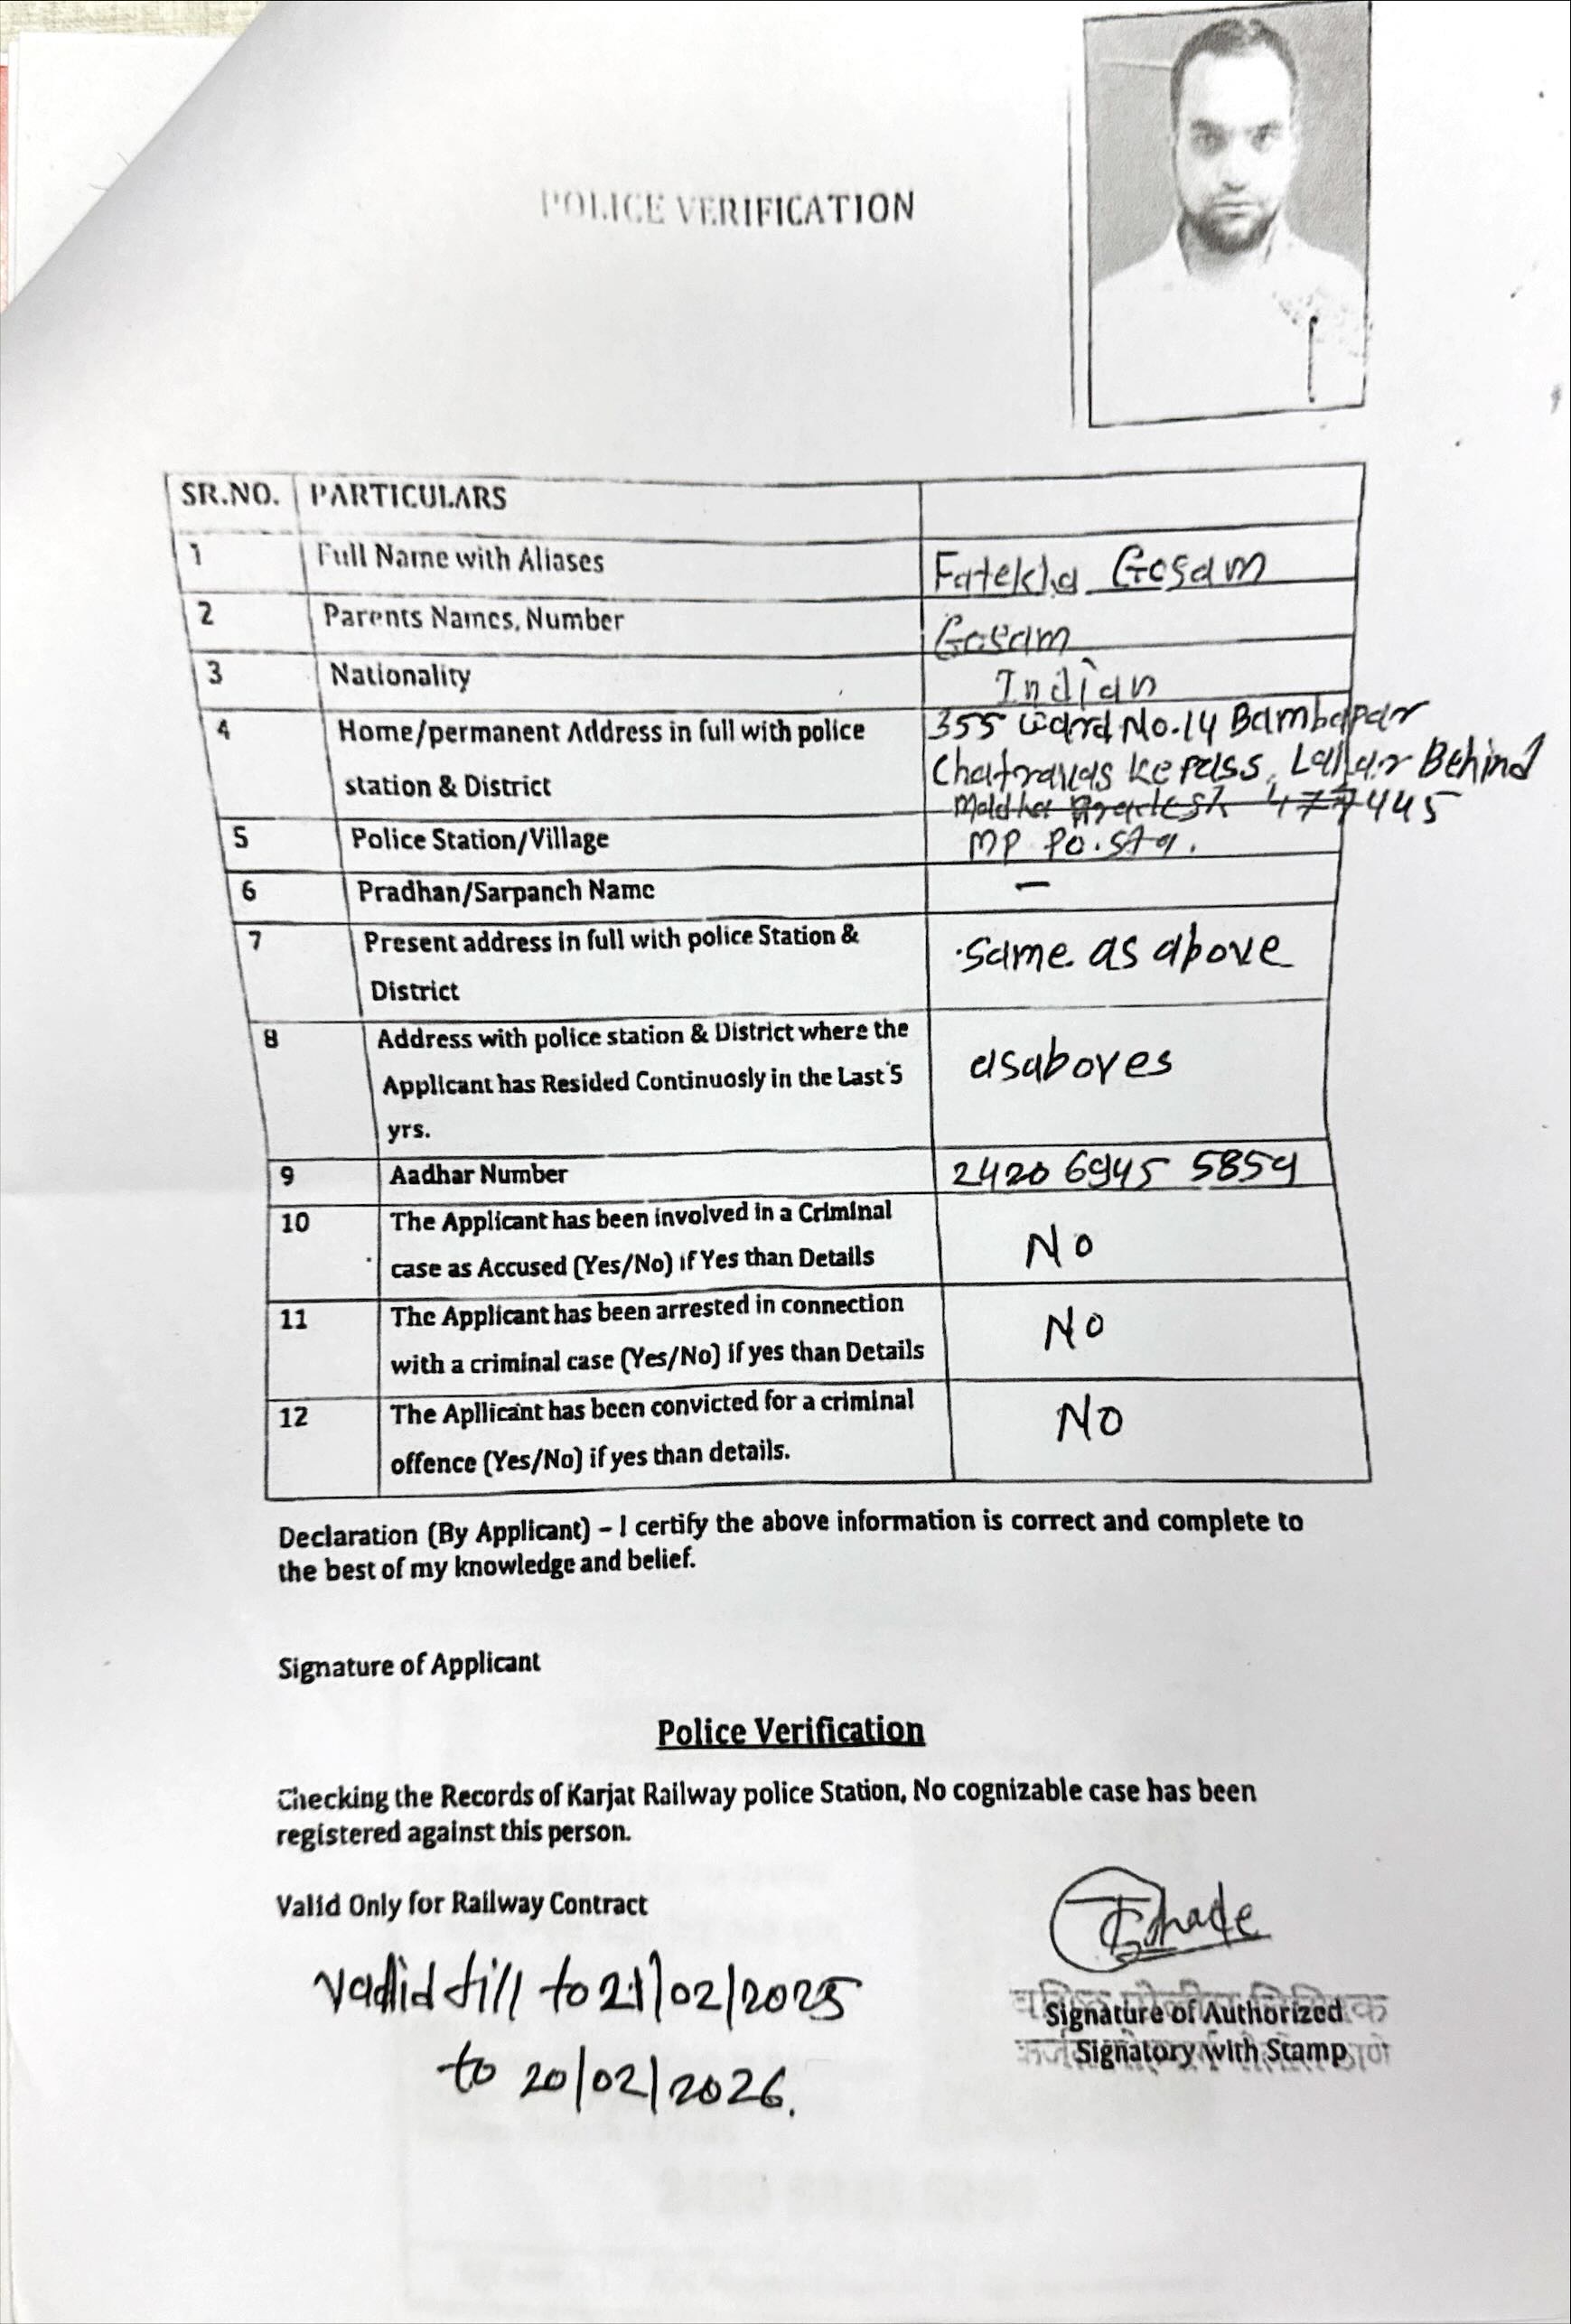 POLICE VERIFICATION
SR.NO. PARTICULARS
1 Full Name with Aliases Fatekha Gosam
2 Parents Names, Number Gosam
3 Nationality Indian
4 Home/permanent Address in full with police station & District
355 Ward No.14 Bambapar
Chatravas ke pass, Lahar Behind
Madhya Pradesh 477445
5 Police Station/Village MP Po. Sta.
6 Pradhan/Sarpanch Name –
7 Present address in full with police Station & District
same as above
8 Address with police station & District where the
Applicant has Resided Continuosly in the Last 5
yrs.
asaboves
9 Aadhar Number 2420 6945 5859
10 The Applicant has been involved in a Criminal
case as Accused (Yes/No) if Yes than Details
No
11 The Applicant has been arrested in connection
with a criminal case (Yes/No) if yes than Details
No
12 The Apllicant has been convicted for a criminal
offence (Yes/No) if yes than details.
No
Declaration (By Applicant) – I certify the above information is correct and complete to
the best of my knowledge and belief.
Signature of Applicant
Police Verification
Checking the Records of Karjat Railway police Station, No cognizable case has been
registered against this person.
Valid Only for Railway Contract
Vadlid till to 21/02/2025
to 20/02/2026.
Signature of Authorized
Signatory with Stamp